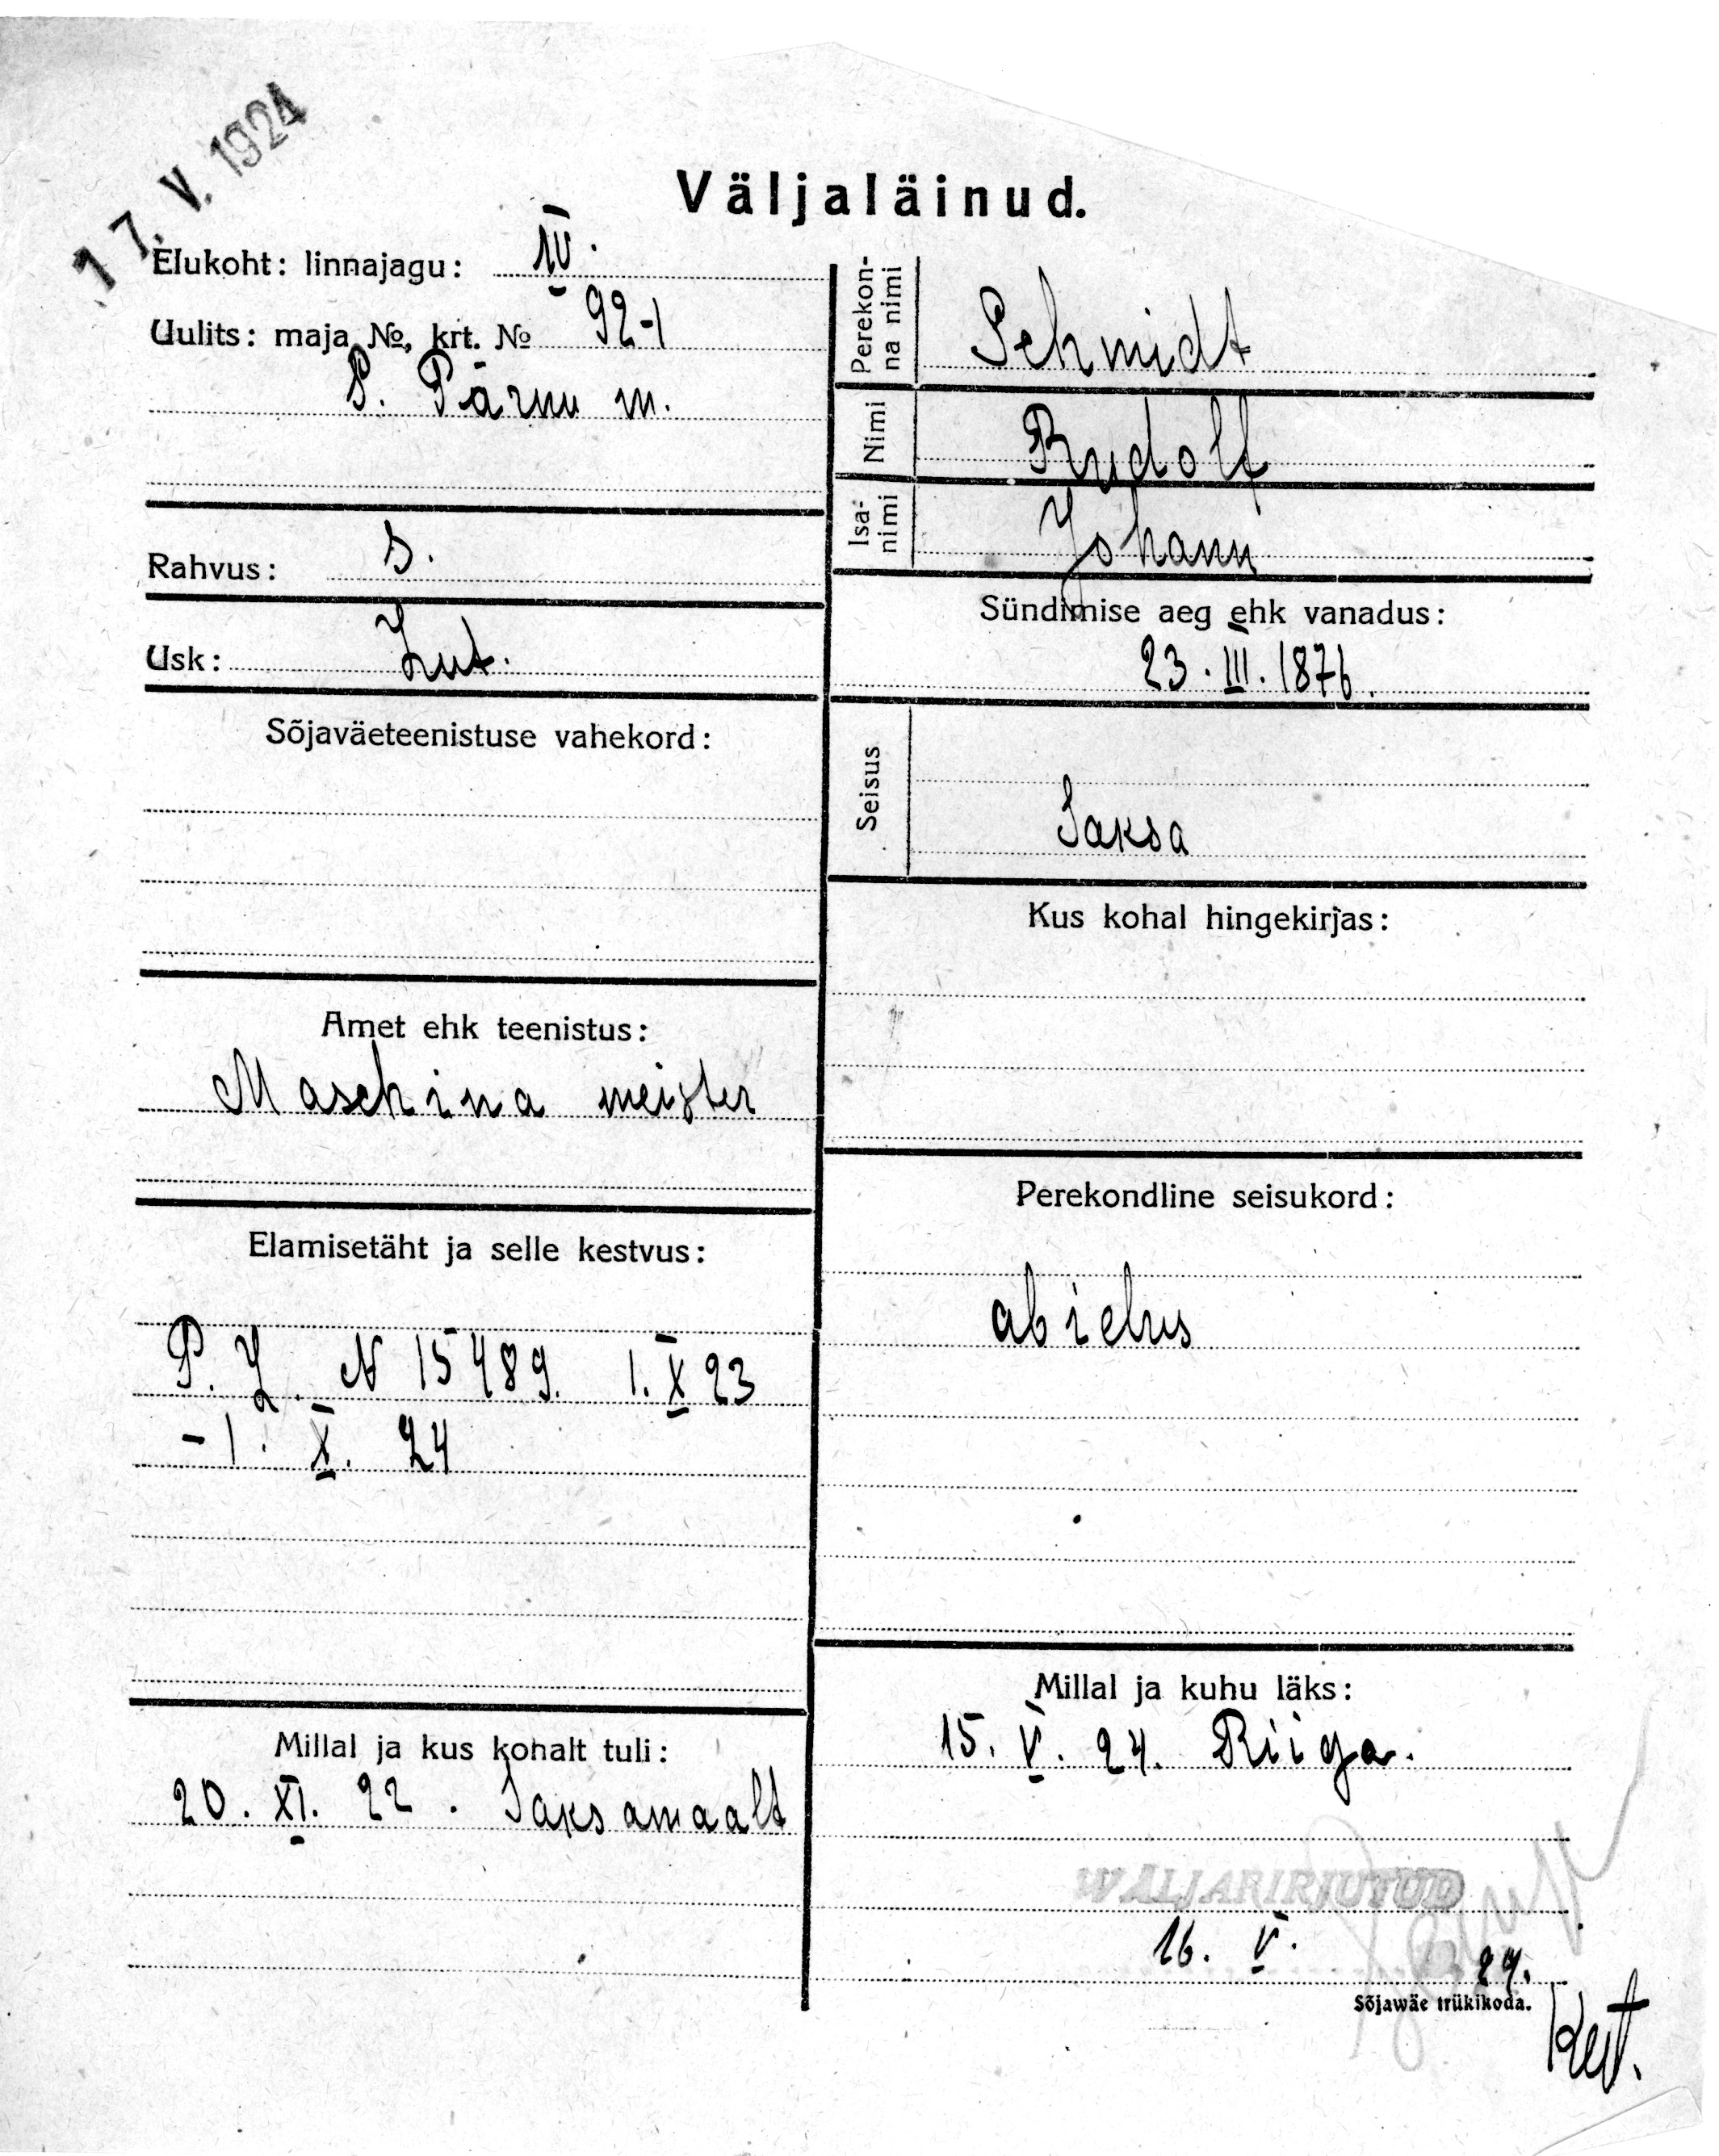 17. V. 1924
Väljaläinud.
Elukoht: linnajagu: IV.
Uulits: maja №, krt. № 92-1
S. Pärnu m.
Rahvus: S.
Usk: Lut.
Sõjaväeteenistuse vahekord:
Amet ehk teenistus:
Maschina meister
Elamisetäht ja selle kestvus:
P. L. N 15489. 1. X 23
- 1. X. 24
Millal ja kus kohalt tuli:
20. XI. 22. Saksamaalt
Perekon-
na nimi
Schmidt
Nimi
Rudolf
Isa-
nimi
Johann
Sündimise aeg ehk vanadus:
23. III. 1876.
Seisus
Saksa
Kus kohal hingekirjas:
Perekondline seisukord:
abielus
Millal ja kuhu läks:
15. V. 24. Riiga.
WÄLJAKIRJUTUD
16. V. 24.
Sõjawäe trükikoda.